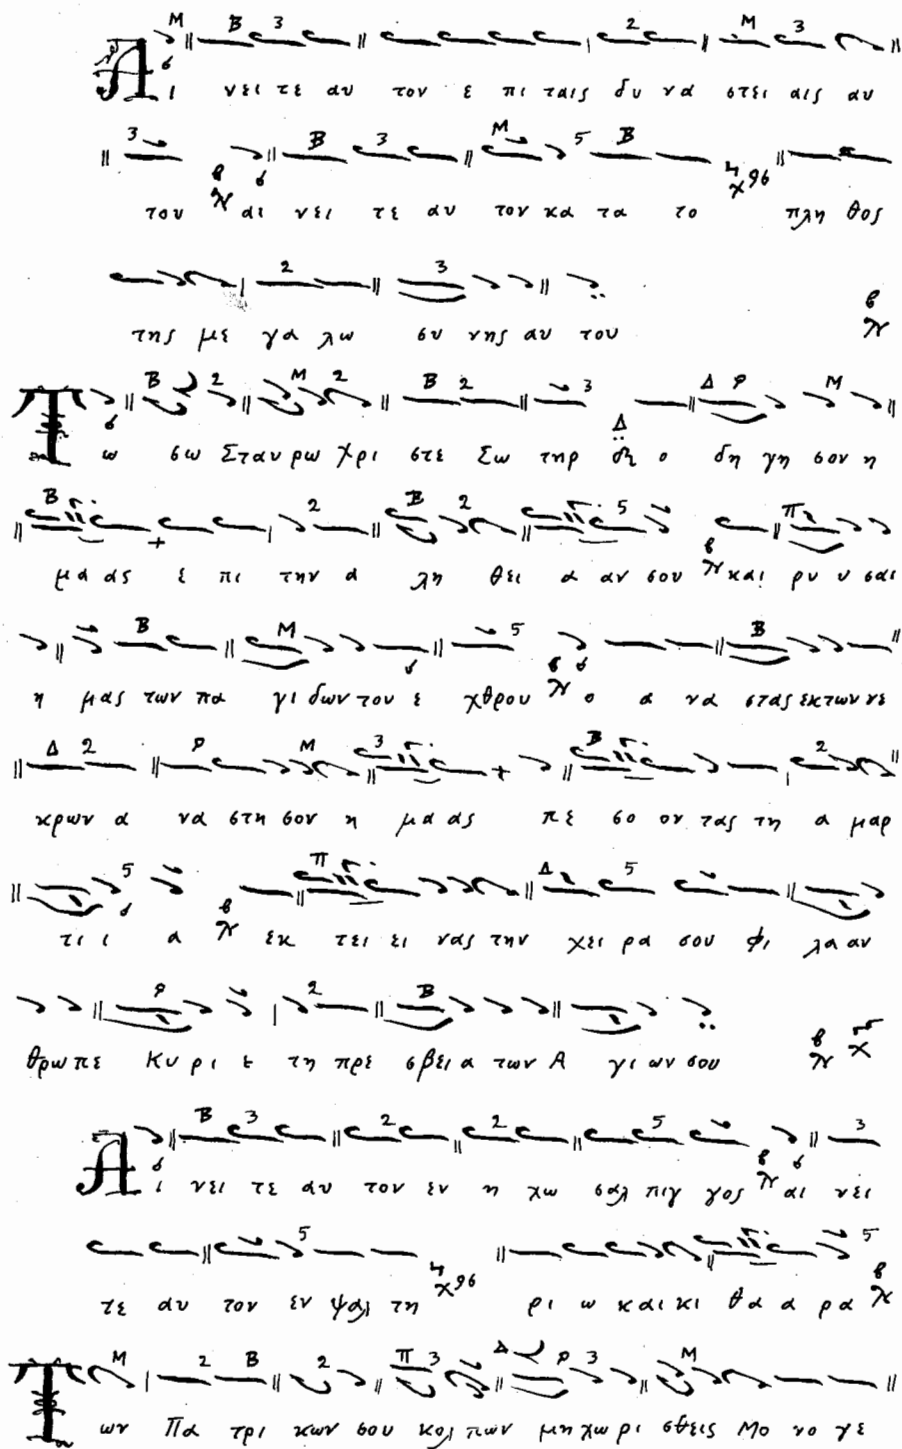 Αι νει τε αυ τον ε πι ταις δυ να στει αις αυ
του αι νει τε αυ τον κα τα το πλη θος
της με γα λω συ νης αυ του
Τω σω Σταυ ρω Χρι στε Σω τηρ ο δη γη σον η
μα ας ε πι την α λη θει α αν σου και ρυ υ σαι
η μας των πα γι δων του ε χθρου ο α να στας εκ των νε
κρων α να στη σον η μα ας πε σο ον τας τη α μαρ
τι ι α εκ τει ει νας την χει ρα σου φι λα αν
θρω πε Κυ ρι ε τη πρε σβει α των Α γι ων σου
Αι νει τε αυ τον εν η χω σαλ πιγ γος αι νει
τε αυ τον εν ψαλ τη ρι ω και κι θα α ρα
Των Πα τρι κων σου κολ πων μη χω ρι σθεις Μο νο γε